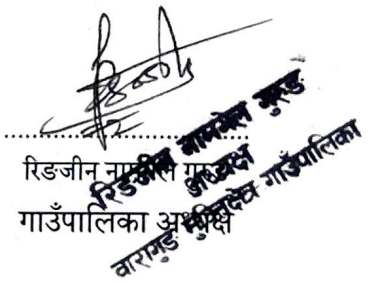 रिङजीन नामग्याल गुरुङ
गाउँपालिका अध्यक्ष
रिङजीन नामग्याल गुरुङ
अध्यक्ष
वारागुङ मुक्तिक्षेत्र गाउँपालिका